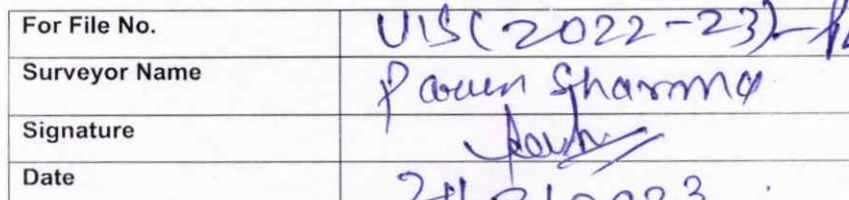 For File No. VIS(2022-23)-
Surveyor Name Parven Sharma
Signature
Date